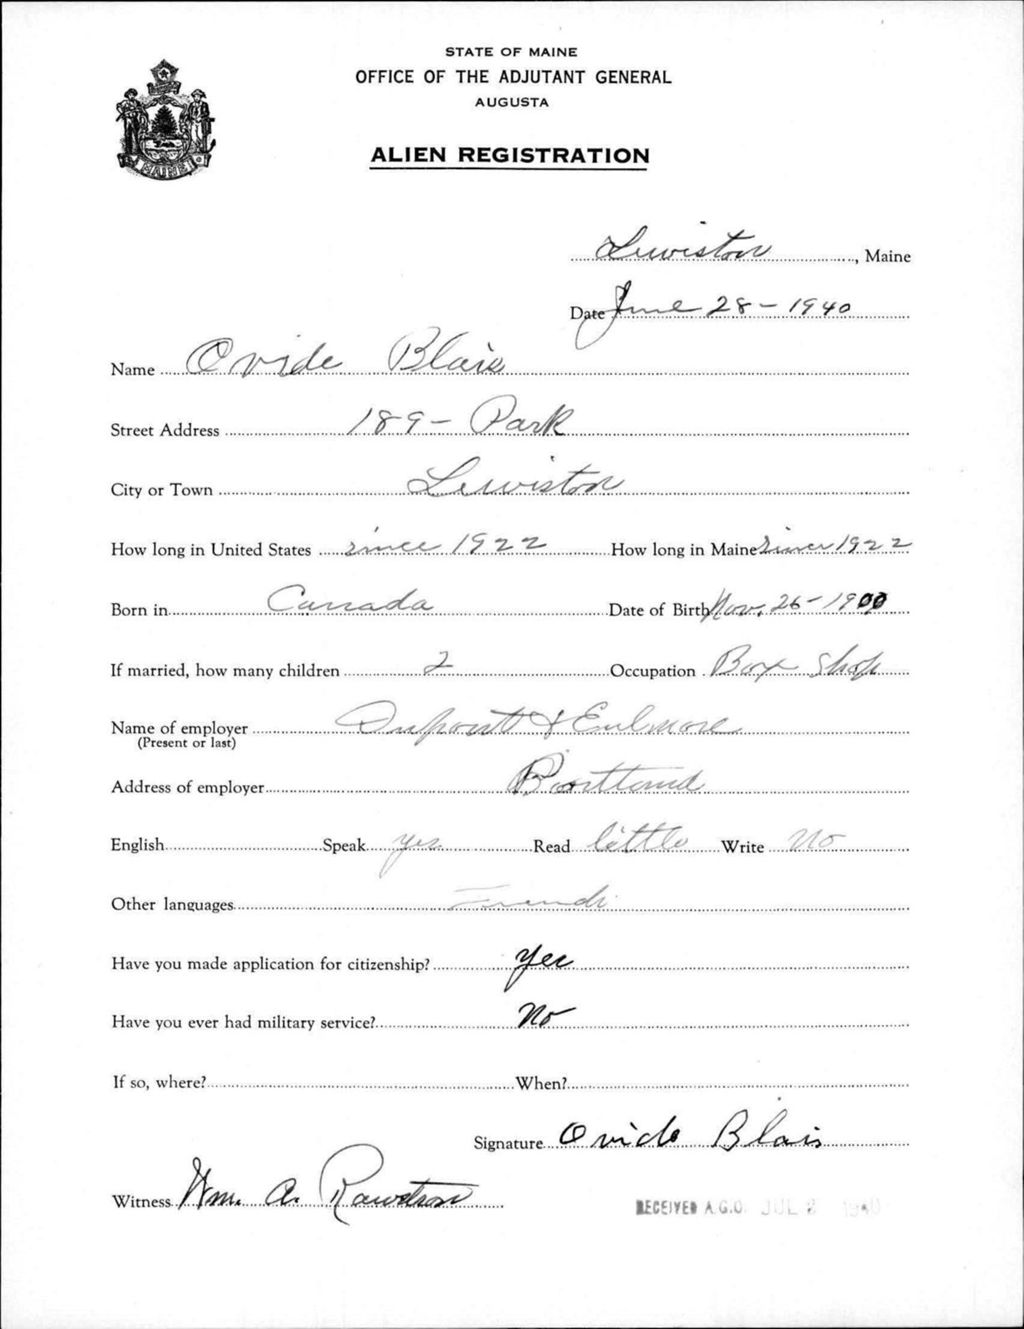 STATE OF MAINE
OFFICE OF THE ADJUTANT GENERAL
AUGUSTA
ALIEN REGISTRATION
MAINE
Lewiston, Maine
Date June 28 - 1940
Name Ovide Blais
Street Address 189 - Park
City or Town Lewiston
How long in United States since 1922 How long in Maine since 1922
Born in Canada Date of Birth Nov. 26 - 1900
If married, how many children 2 Occupation Box Shop
Name of employer Dupont &
(Present or last)
Address of employer Portland
English Speak yes Read little Write No
Other languages French
Have you made application for citizenship? Yes
Have you ever had military service? No
If so, where? When?
Signature Ovide Blais
Witness Wm. A. Rawstron
RECEIVED A.G.O. JUL 2 1940